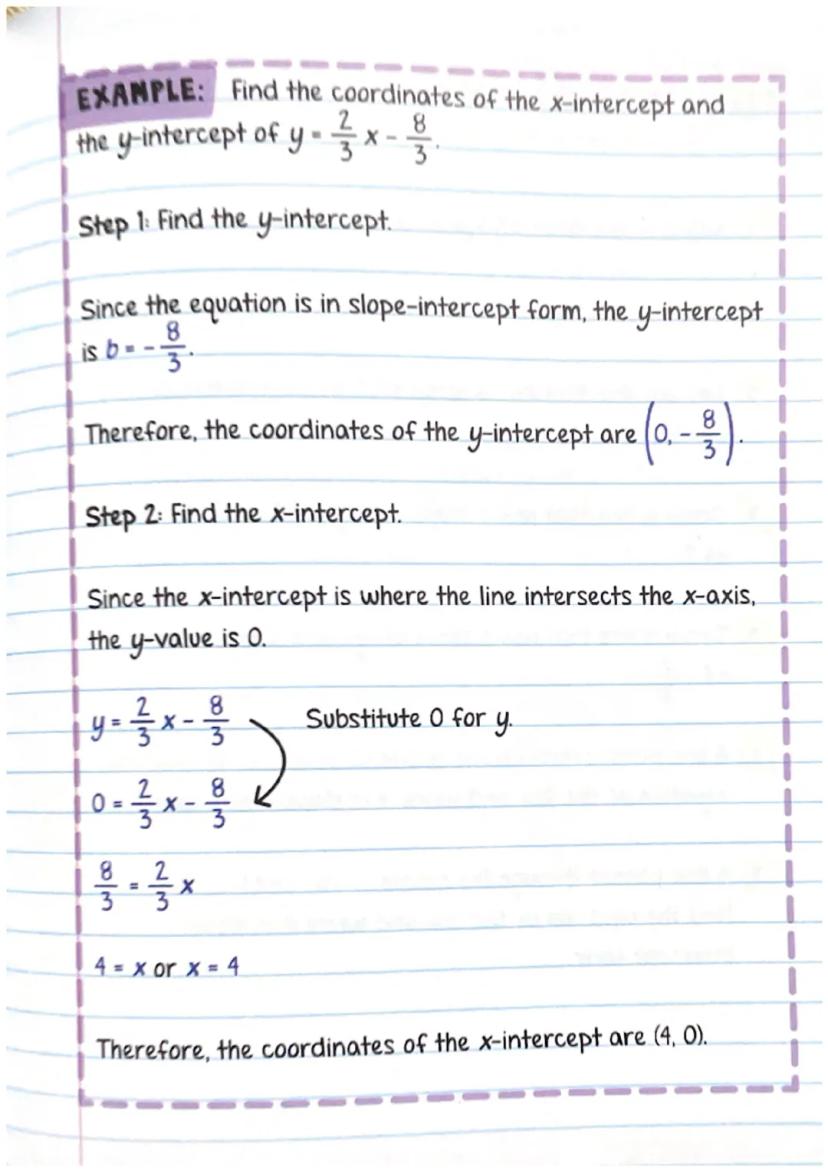 EXAMPLE: Find the coordinates of the x-intercept and
the y-intercept of y = 2/3 x - 8/3.
Step 1: Find the y-intercept.
Since the equation is in slope-intercept form, the y-intercept
is b = - 8/3.
Therefore, the coordinates of the y-intercept are (0, - 8/3).
Step 2: Find the x-intercept.
Since the x-intercept is where the line intersects the x-axis,
the y-value is 0.
y = 2/3 x - 8/3 Substitute 0 for y.
0 = 2/3 x - 8/3
8/3 = 2/3 x
4 = x or x = 4
Therefore, the coordinates of the x-intercept are (4, 0).